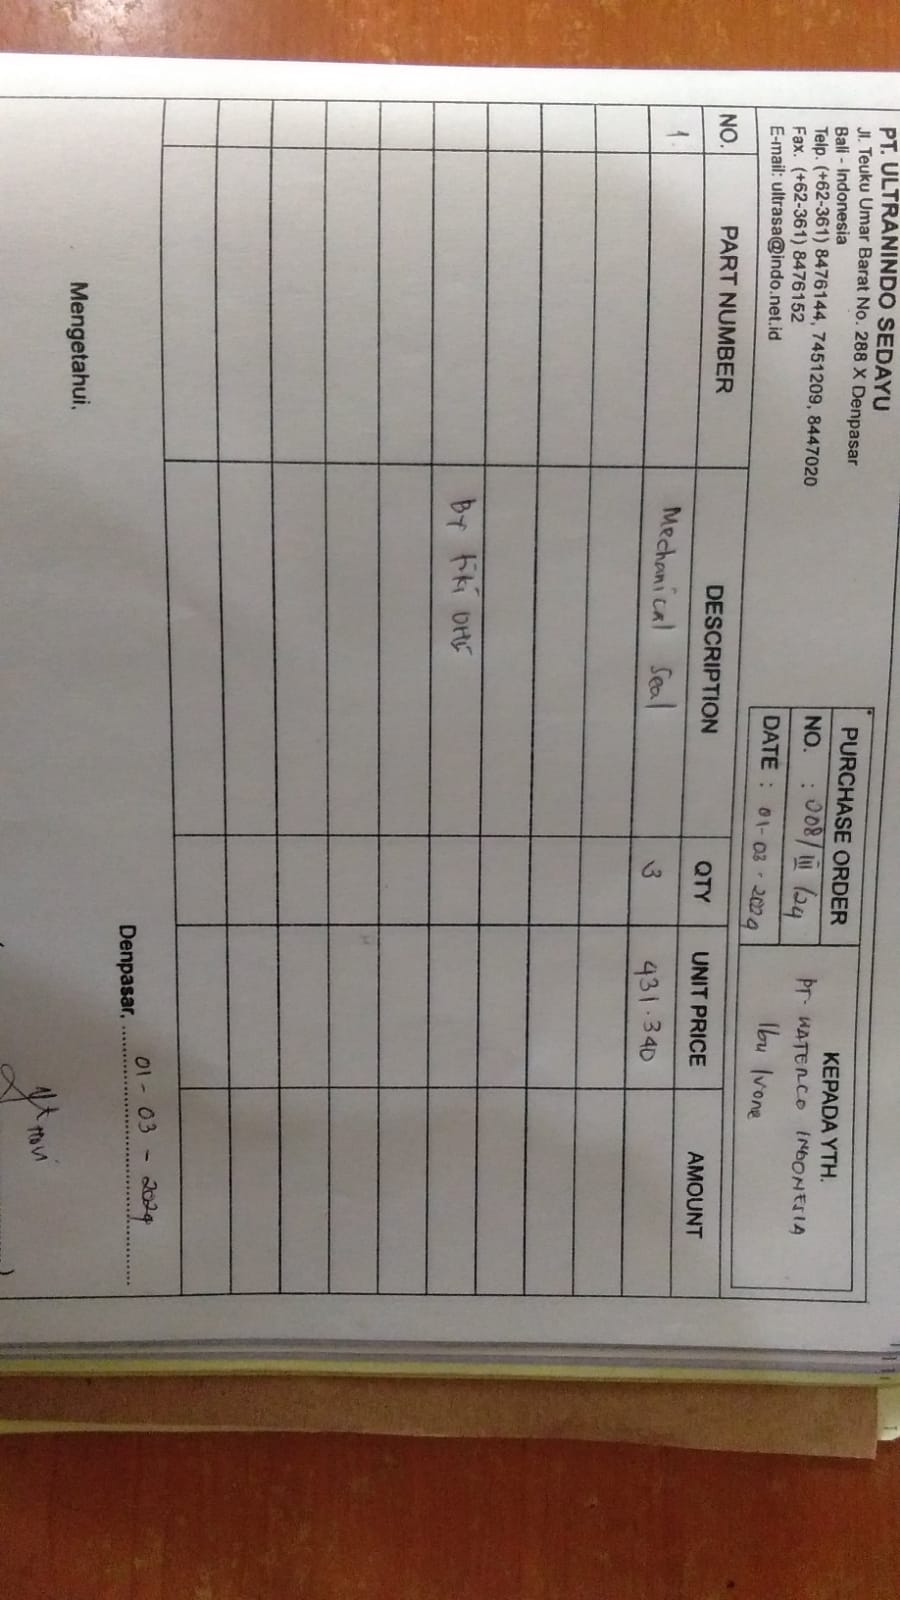 PT. ULTRANINDO SEDAYU
Jl. Teuku Umar Barat No. 288 X Denpasar
Bali - Indonesia
Telp. (+62-361) 8476144, 7451209, 8447020
Fax. (+62-361) 8476152
E-mail: ultrasa@indo.net.id
PURCHASE ORDER
NO. : 008/III/24
DATE : 01-03-2024
KEPADA YTH.
PT. WATERCO INDONESIA
Ibu Ivone
NO. PART NUMBER DESCRIPTION QTY UNIT PRICE AMOUNT
1. Mechanical Seal 3 431.340
By tiki
Denpasar, 01-03-2024
Mengetahui,